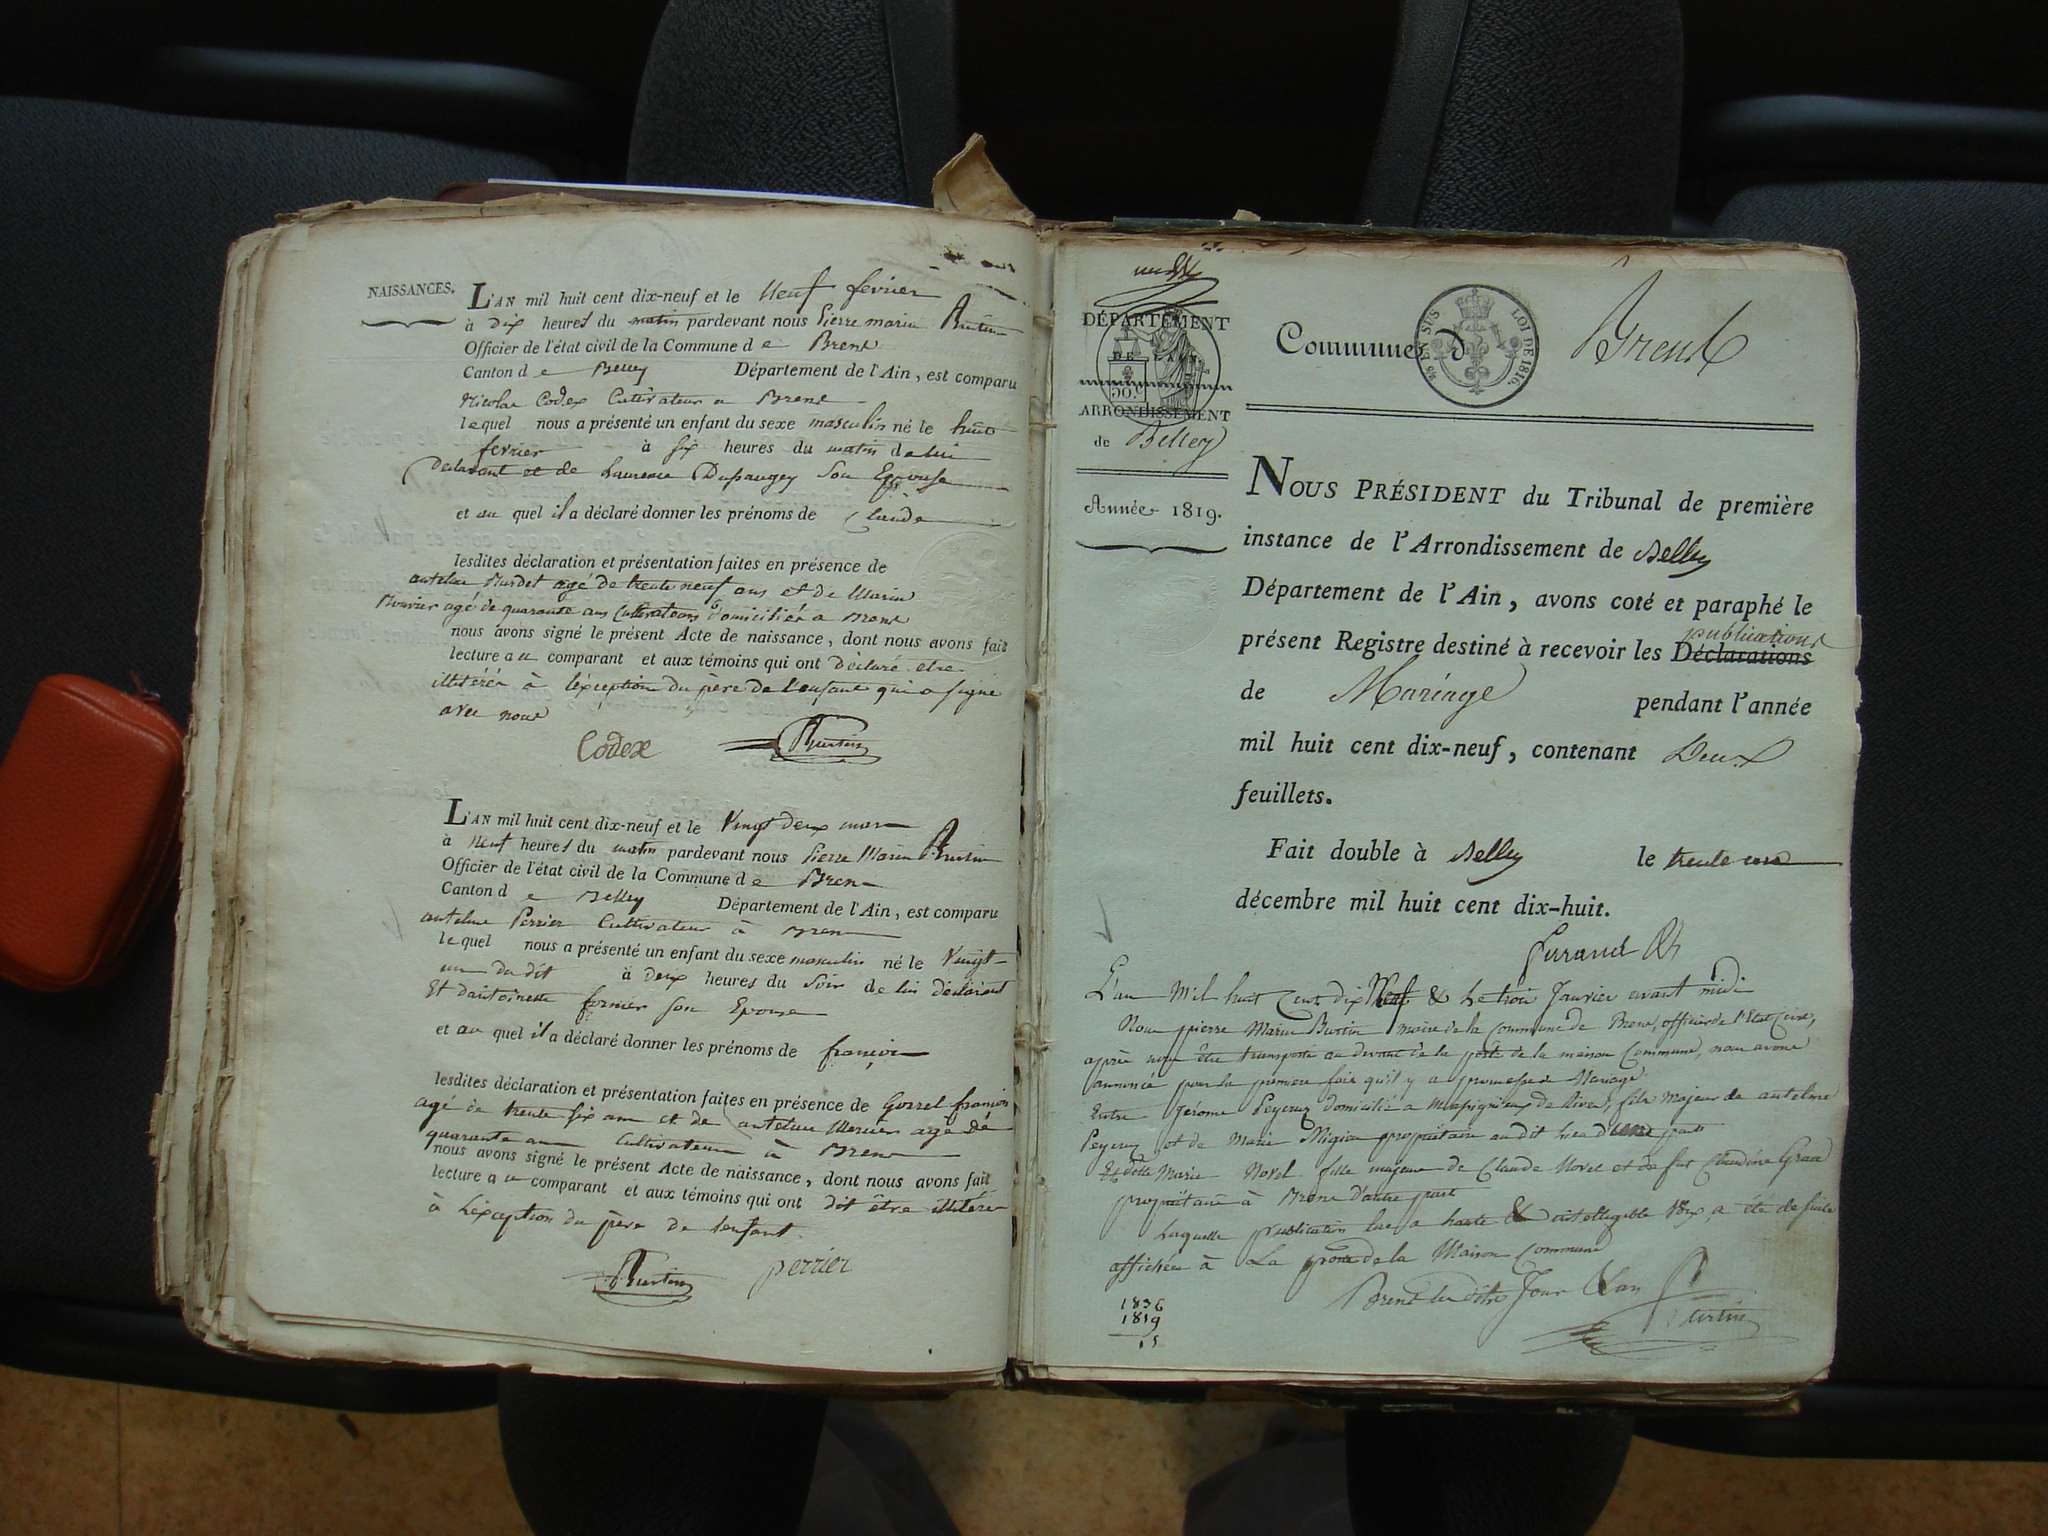 NAISSANCES.
L'AN mil huit cent dix-neuf et le Neuf fevrier
à dix heures du matin pardevant nous Pierre marin Burtin
Officier de l'état civil de la Commune d e Brens
Canton d e Belley Département de l'Ain, est comparu
Nicolas Codex Cultivateur a Brens
lequel nous a présenté un enfant du sexe masculin né le huit
fevrier à six heures du matin de lui
declarant et de Laurence Dupaugey Son Epouse
et au quel il a déclaré donner les prénoms de Claude
lesdites déclaration et présentation faites en présence de
antelme Burdet agé de trente neuf ans et de Marin
Bouvier agé de quarante ans Cultivateurs domiciliés a Brens
nous avons signé le présent Acte de naissance, dont nous avons fait
lecture a u comparant et aux témoins qui ont Déclaré etre
illitérés à l'éxception du père de l'enfant qui a signé
avec nous
Codex Burtin
L'AN mil huit cent dix-neuf et le Vingt deux mars
à Neuf heures du matin pardevant nous Pierre Marin Burtin
Officier de l'état civil de la Commune d e Brens
Canton d e Belley Département de l'Ain, est comparu
antelme Perrier Cultivateur à Brens
lequel nous a présenté un enfant du sexe masculin né le Vingt
un du dit à deux heures du Soir de lui déclarant
Et d'antoinette fornier son Epouse
et au quel il a déclaré donner les prénoms de françois
lesdites déclaration et présentation faites en présence de Gorrel françois
agé de trente six ans et de antelme Mercier agé de
quarante ans Cultivateurs à Brens
nous avons signé le présent Acte de naissance, dont nous avons fait
lecture a u comparant et aux témoins qui ont dit être illitérés
à l'éxception du père de l'enfant.
Burtin perrier
DÉPARTEMENT
DE L'AIN
50c
ARRONDISSEMENT
de Belley
Année 1819.
Commune d Brens
EN SUS LOI DE 1816.
NOUS PRÉSIDENT du Tribunal de première
instance de l'Arrondissement de Belley
Département de l'Ain, avons coté et paraphé le
publications
présent Registre destiné à recevoir les Déclarations
de Mariage pendant l'année
mil huit cent dix-neuf, contenant Deux
feuillets.
Fait double à Belley le trente un
décembre mil huit cent dix-huit.
L'an Mil huit Cent dix Neuf & Le trois Janvier avant midi
Nous pierre Marin Burtin maire de la Commune de Brens, officier de l'Etat Civil,
après nous être transporté au devant de la porte de la maison Commune, nous avons
annoncé pour la premiere fois qu'il y a promesse de Mariage
Entre Jérome Peyeruz domicilié a Massignieux de Rives, fils majeur de antelme
Peyeruz et de Marie Migieu propriétaire au dit lieu d'une part
Et dlle Marie Novel fille majeure de Claude Novel et de fue Claudine Grau
propriétaire à Brens D'autre part
Laquelle publication lue a haute & intelligible Voix, a été de suite
affichée à La porte de la Maison Commune
Brens les dits Jour & an
Burtin
1836
1819
15